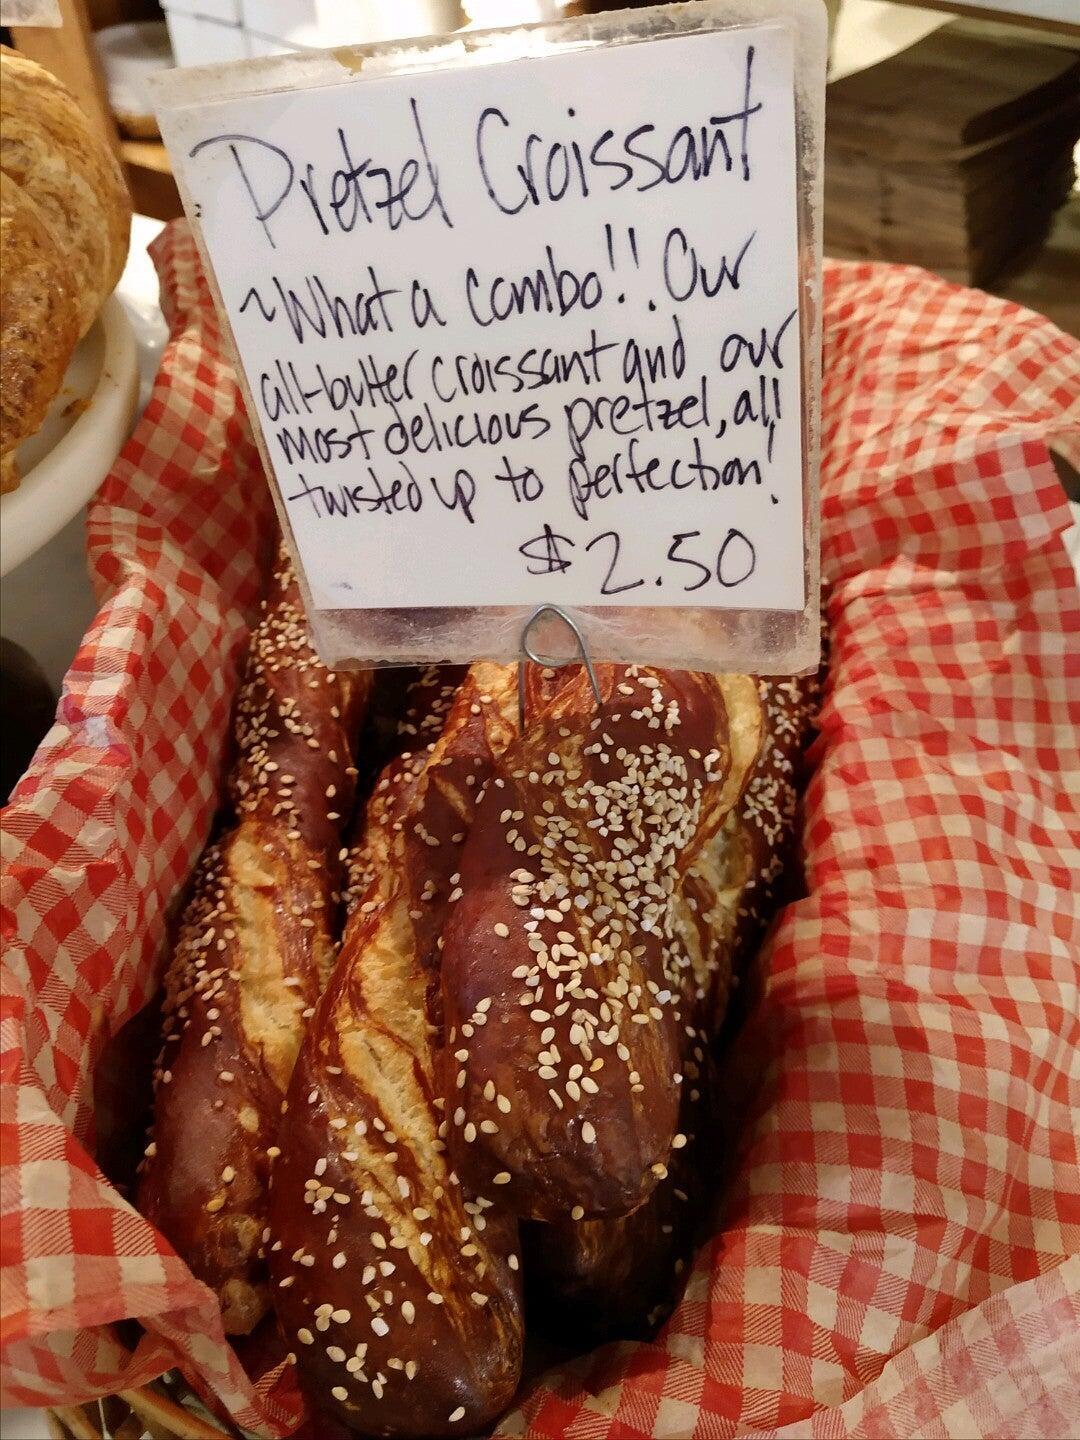 Pretzel Croissant
~What a combo!! Our
all-butter croissant and our
most delicious pretzel, all
twisted up to perfection!
$2.50